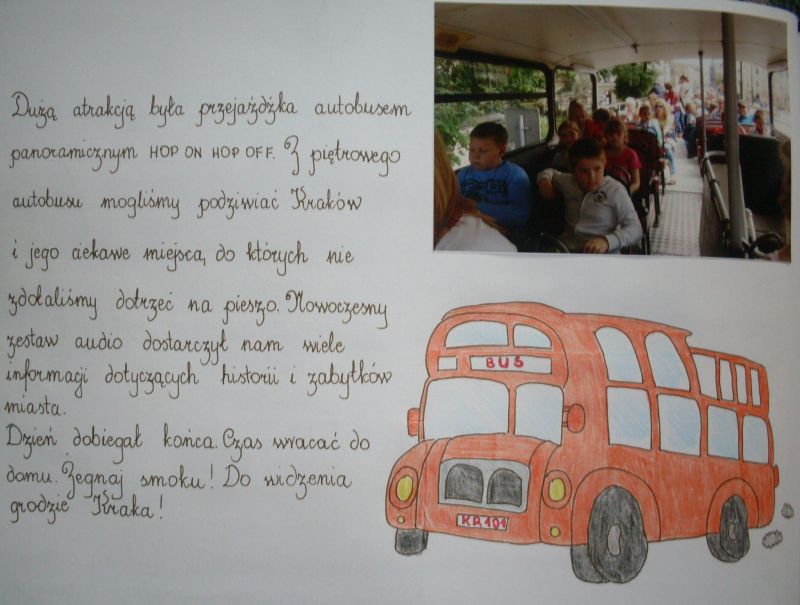 Dużą atrakcją była przejażdżka autobusem
panoramicznym HOP ON HOP OFF. Z piętrowego
autobusu mogliśmy podziwiać Kraków
i jego ciekawe miejsca, do których nie
zdołaliśmy dotrzeć na pieszo. Nowoczesny
zestaw audio dostarczył nam wiele
informagi dotyczących historii i zabytków
miasta.
Dzień dobiegał końca. Czas wracać do
domu. Żegnaj smoku! Do widzenia
grodzie Kraka!
BUS
KR 101